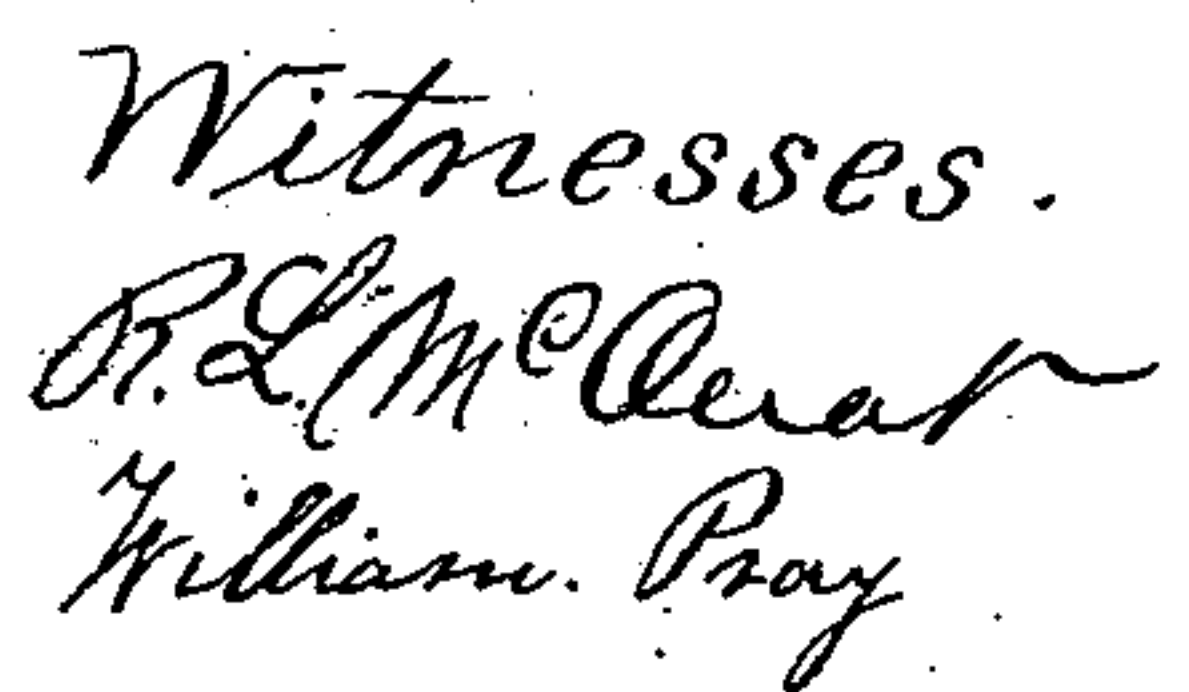 Witnesses.
R. L. Mc
William. Pray